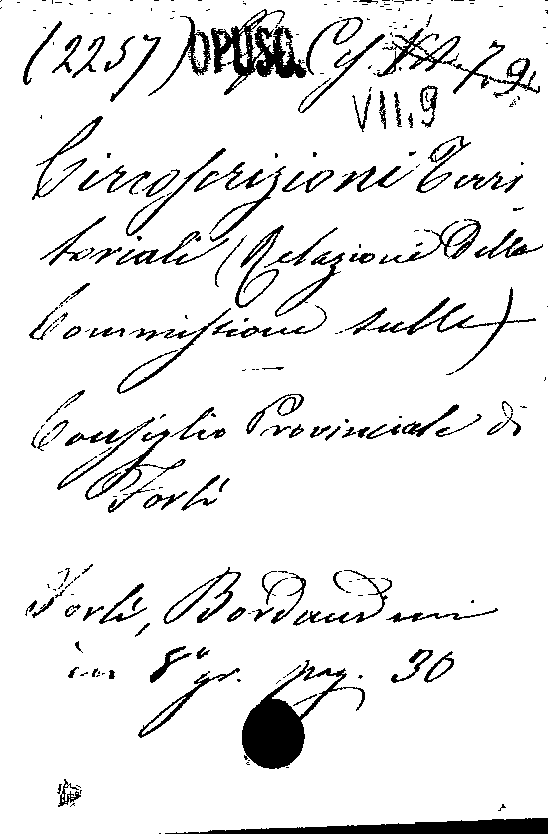 (2257) OPUSC. Cf. VII. 7.9.
VII.9
Circoscrizioni Terri
toriali (Relazione della
Commissione sulle)
Consiglio Provinciale di
Forlì
Forlì, Bordandini
in 8º gr. pag. 30